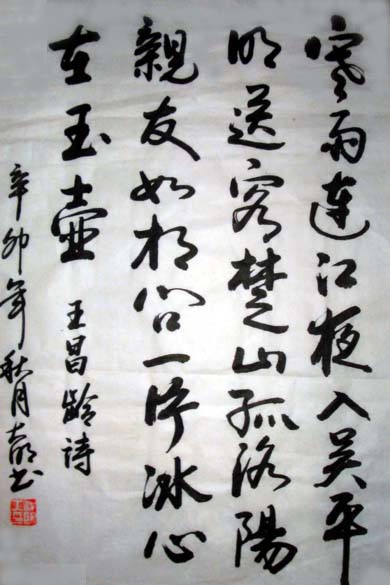 寒雨連江夜入吴平
明送客楚山孤洛陽
親友如相问一片冰心
在玉壺 王昌齡詩
辛卯年秋月书